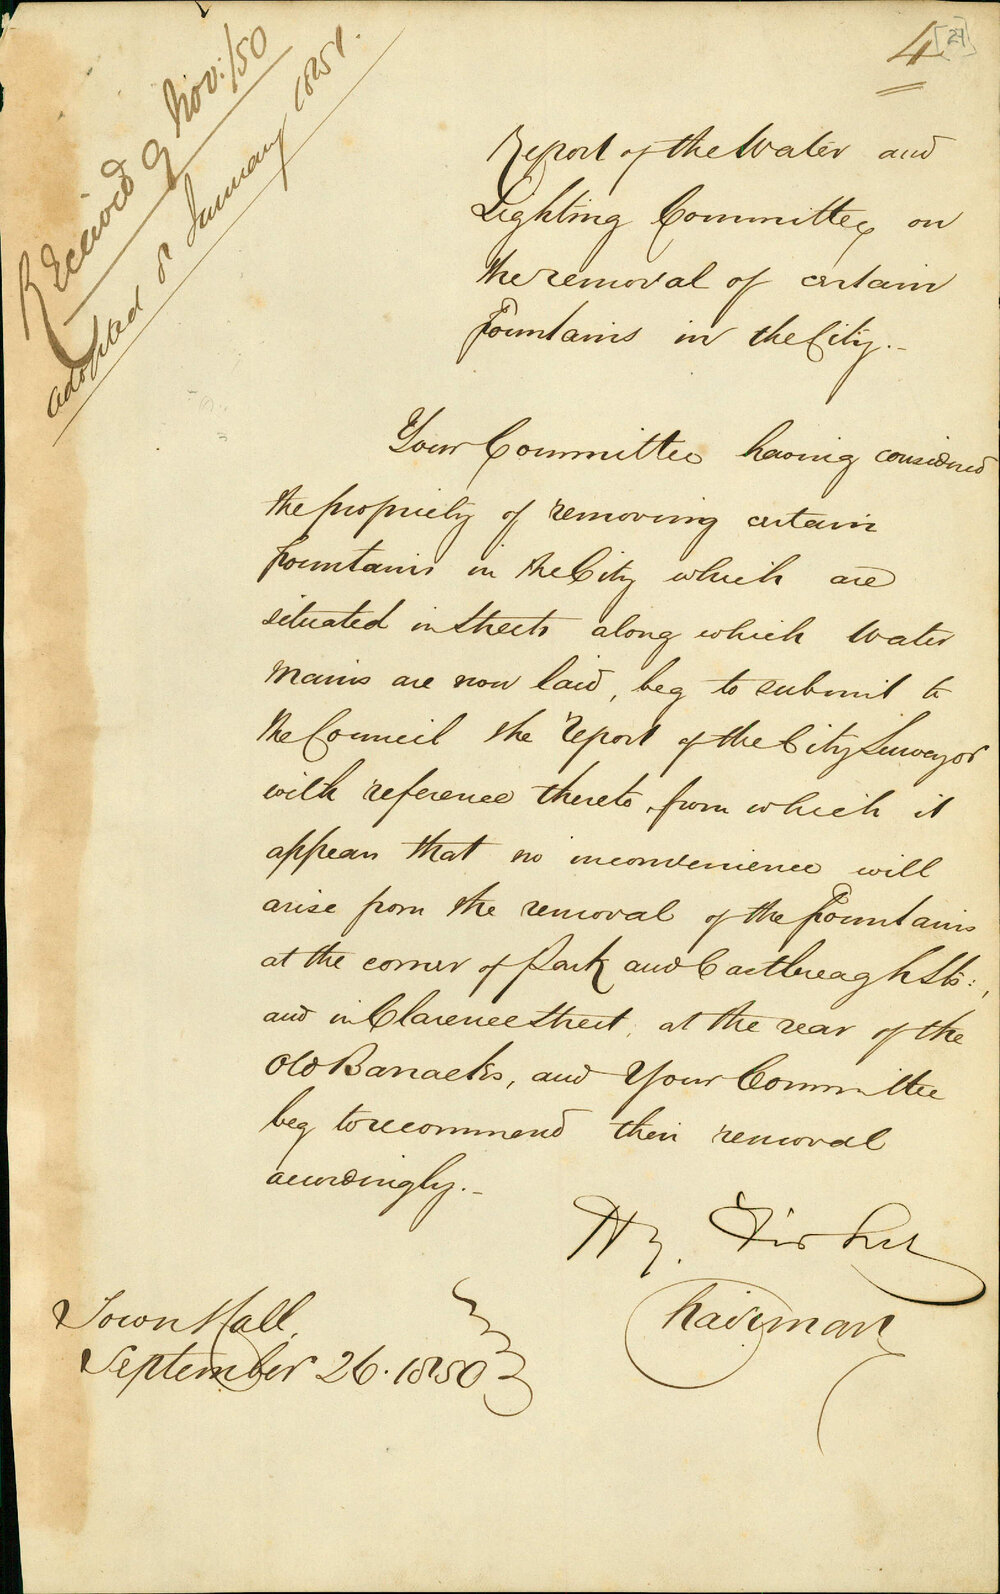 4 [24]
Received 9 Nov:/50
adopted 8 January 1851.
Report of the Water and
Lighting Committee on
the removal of certain
Fountains in the City.-
Your Committee having considered
the propriety of removing certain
fountains in the City which are
situated in Streets along which Water
Mains are now laid, beg to submit to
the Council the report of the City Surveyor
with reference thereto, from which it
appears that no inconvenience will
arise from the removal of the Fountains
at the corner of Park and Castlereagh Sts:,
and in Clarence Street, at the rear of the
Old Barracks, and Your Committee
beg to recommend their removal
accordingly.-
Hy. Fisher
Chairman
Town Hall,
September 26. 1850